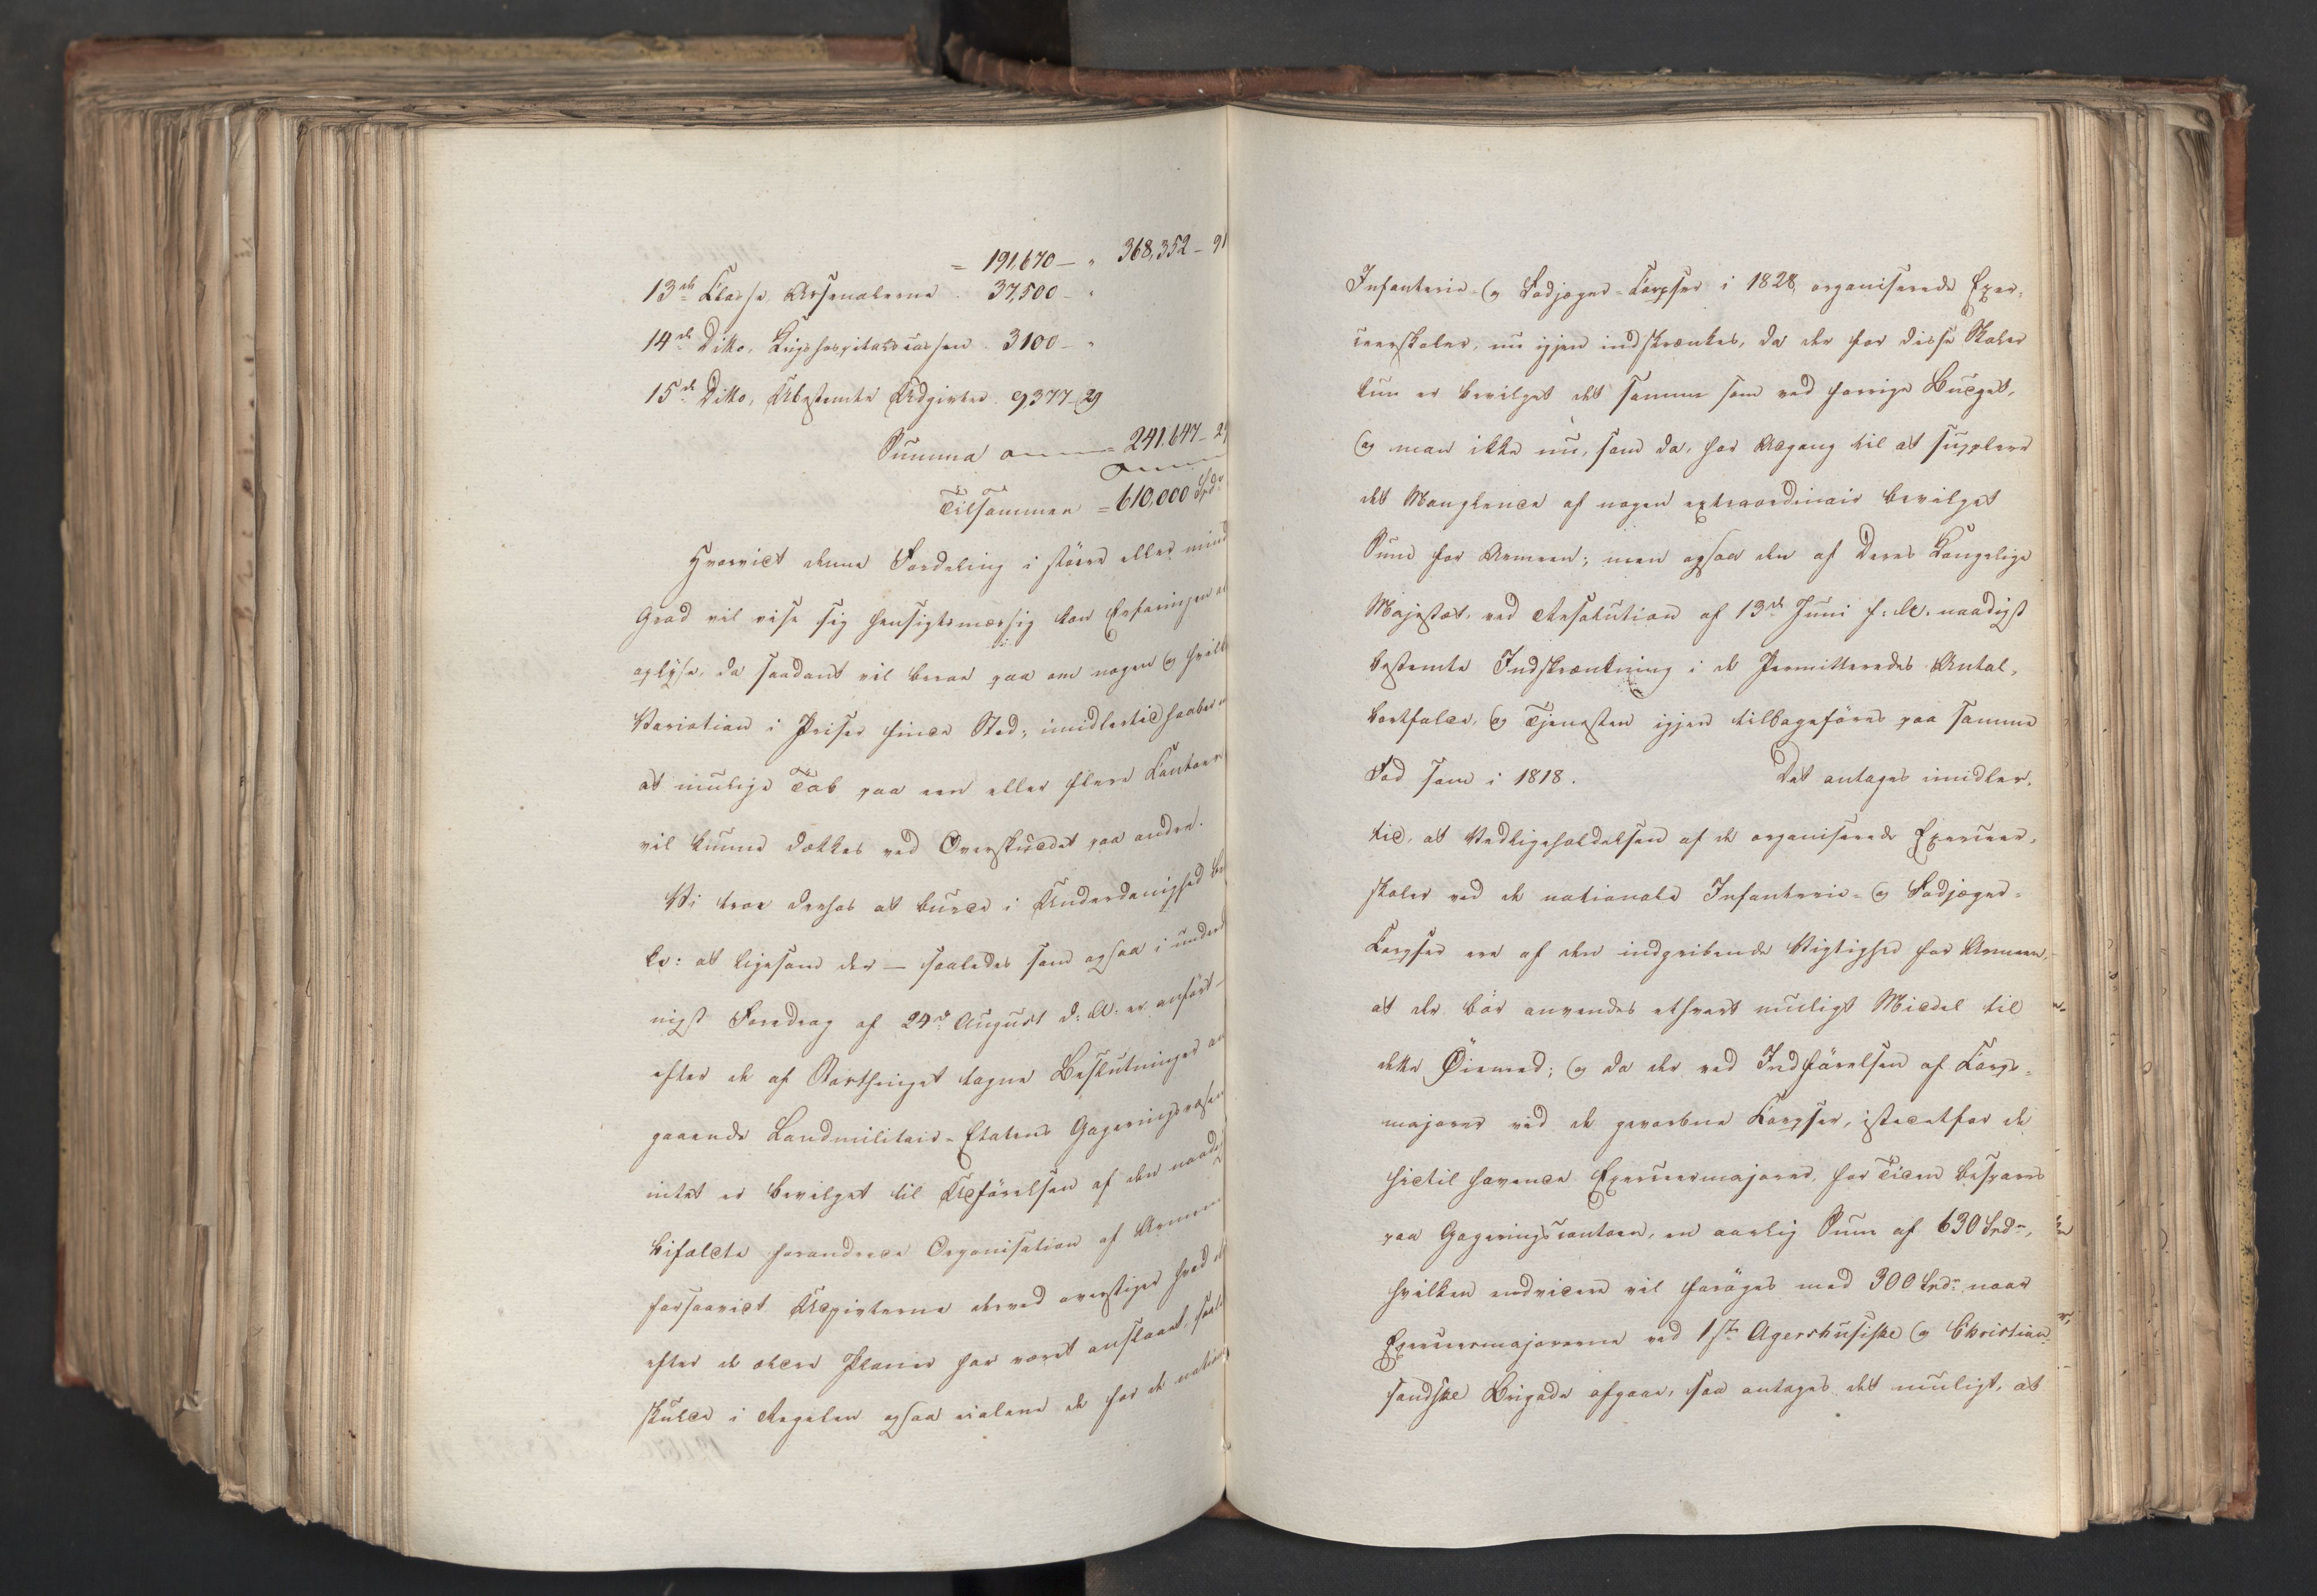 = 191,670 – " 368,352 – 91
13de Classe, Arsenalerne . 37,500 – "
14de Ditto, Krigshospitalscassen . 3100 – "
15de Ditto, Ubestemte Udgivter . 9377 – 29
Summa = 241,647 – 29
Tilsammen = 610,000 Spd
Hvorvidt denne Fordeling i större eller mind
Grad vil vise sig hensigtsmæssig kan Erfaringen
oplyse, da saadant vil beroe paa om nogen og hvilk
Variation i Priser finde Sted; imidlertid haabes
at mulige Tab paa een eller flere Contoer
vil kunne dækkes ved Overskudet paa andre.
Vi troe derhos at burde i Underdanighed be
ke: at ligesom der – saaledes som ogsaa i underd
nigst Foredrag af 24de August d: A: er anført –
efter de af Storthinget tagne Beslutninger an
gaaende Landmilitair-Etatens Gageringsvæsen
intet er bevilget til Udförelsen af den naadi
bifaldte forandrede Organisation af Armeen
forsaavidt Udgivterne derved overstiger hvad d
efter de ældre Planer har været anslaaet, saale
skulde i Regelen ogsaa violene de for de nation
Infanterie- og Fodjæger-Corpser i 1828 organiserede Exer-
ceerskoler, nu igjen indskrænkes, da der for disse Skoler
kun er bevilget det samme som ved forrige Budget,
og man ikke nu, som da, har Adgang til at supplere
det Manglende af nogen extraordinair bevilget
Sum for Armeen; men ogsaa den af Deres Kongelige
Majestæt, ved Resolution af 13de Juni f: A: naadigst
bestemte Indskrænkning i de Permitteredes Antal,
bortfalde, og Tjenesten igjen tilbageføres paa samme
Fod som i 1818. Det antages imidler-
tid, at Vedligeholdelsen af de organiserede Exerceer-
skoler ved de nationale Infanterie- og Fodjæger-
Corpser ere af den indgribende Vigtighed for Armeen,
at der bör anvendes ethvert muligt Middel til
dette Öiemed; og da der ved Indförelsen af Corps-
majorer ved de gevorbne Corpser, istedetfor de
hidtil havende Exerceermajorer, for Tiden bespares
paa Gageringscontoen, en aarlig Sum af 630 Spdr,
hvilken endvidere vil forøges med 300 Spdr naar
Exerceermajorerne ved 1ste Agershusiske og Christian-
sandske Brigade afgaae, saa antages det muligt, at